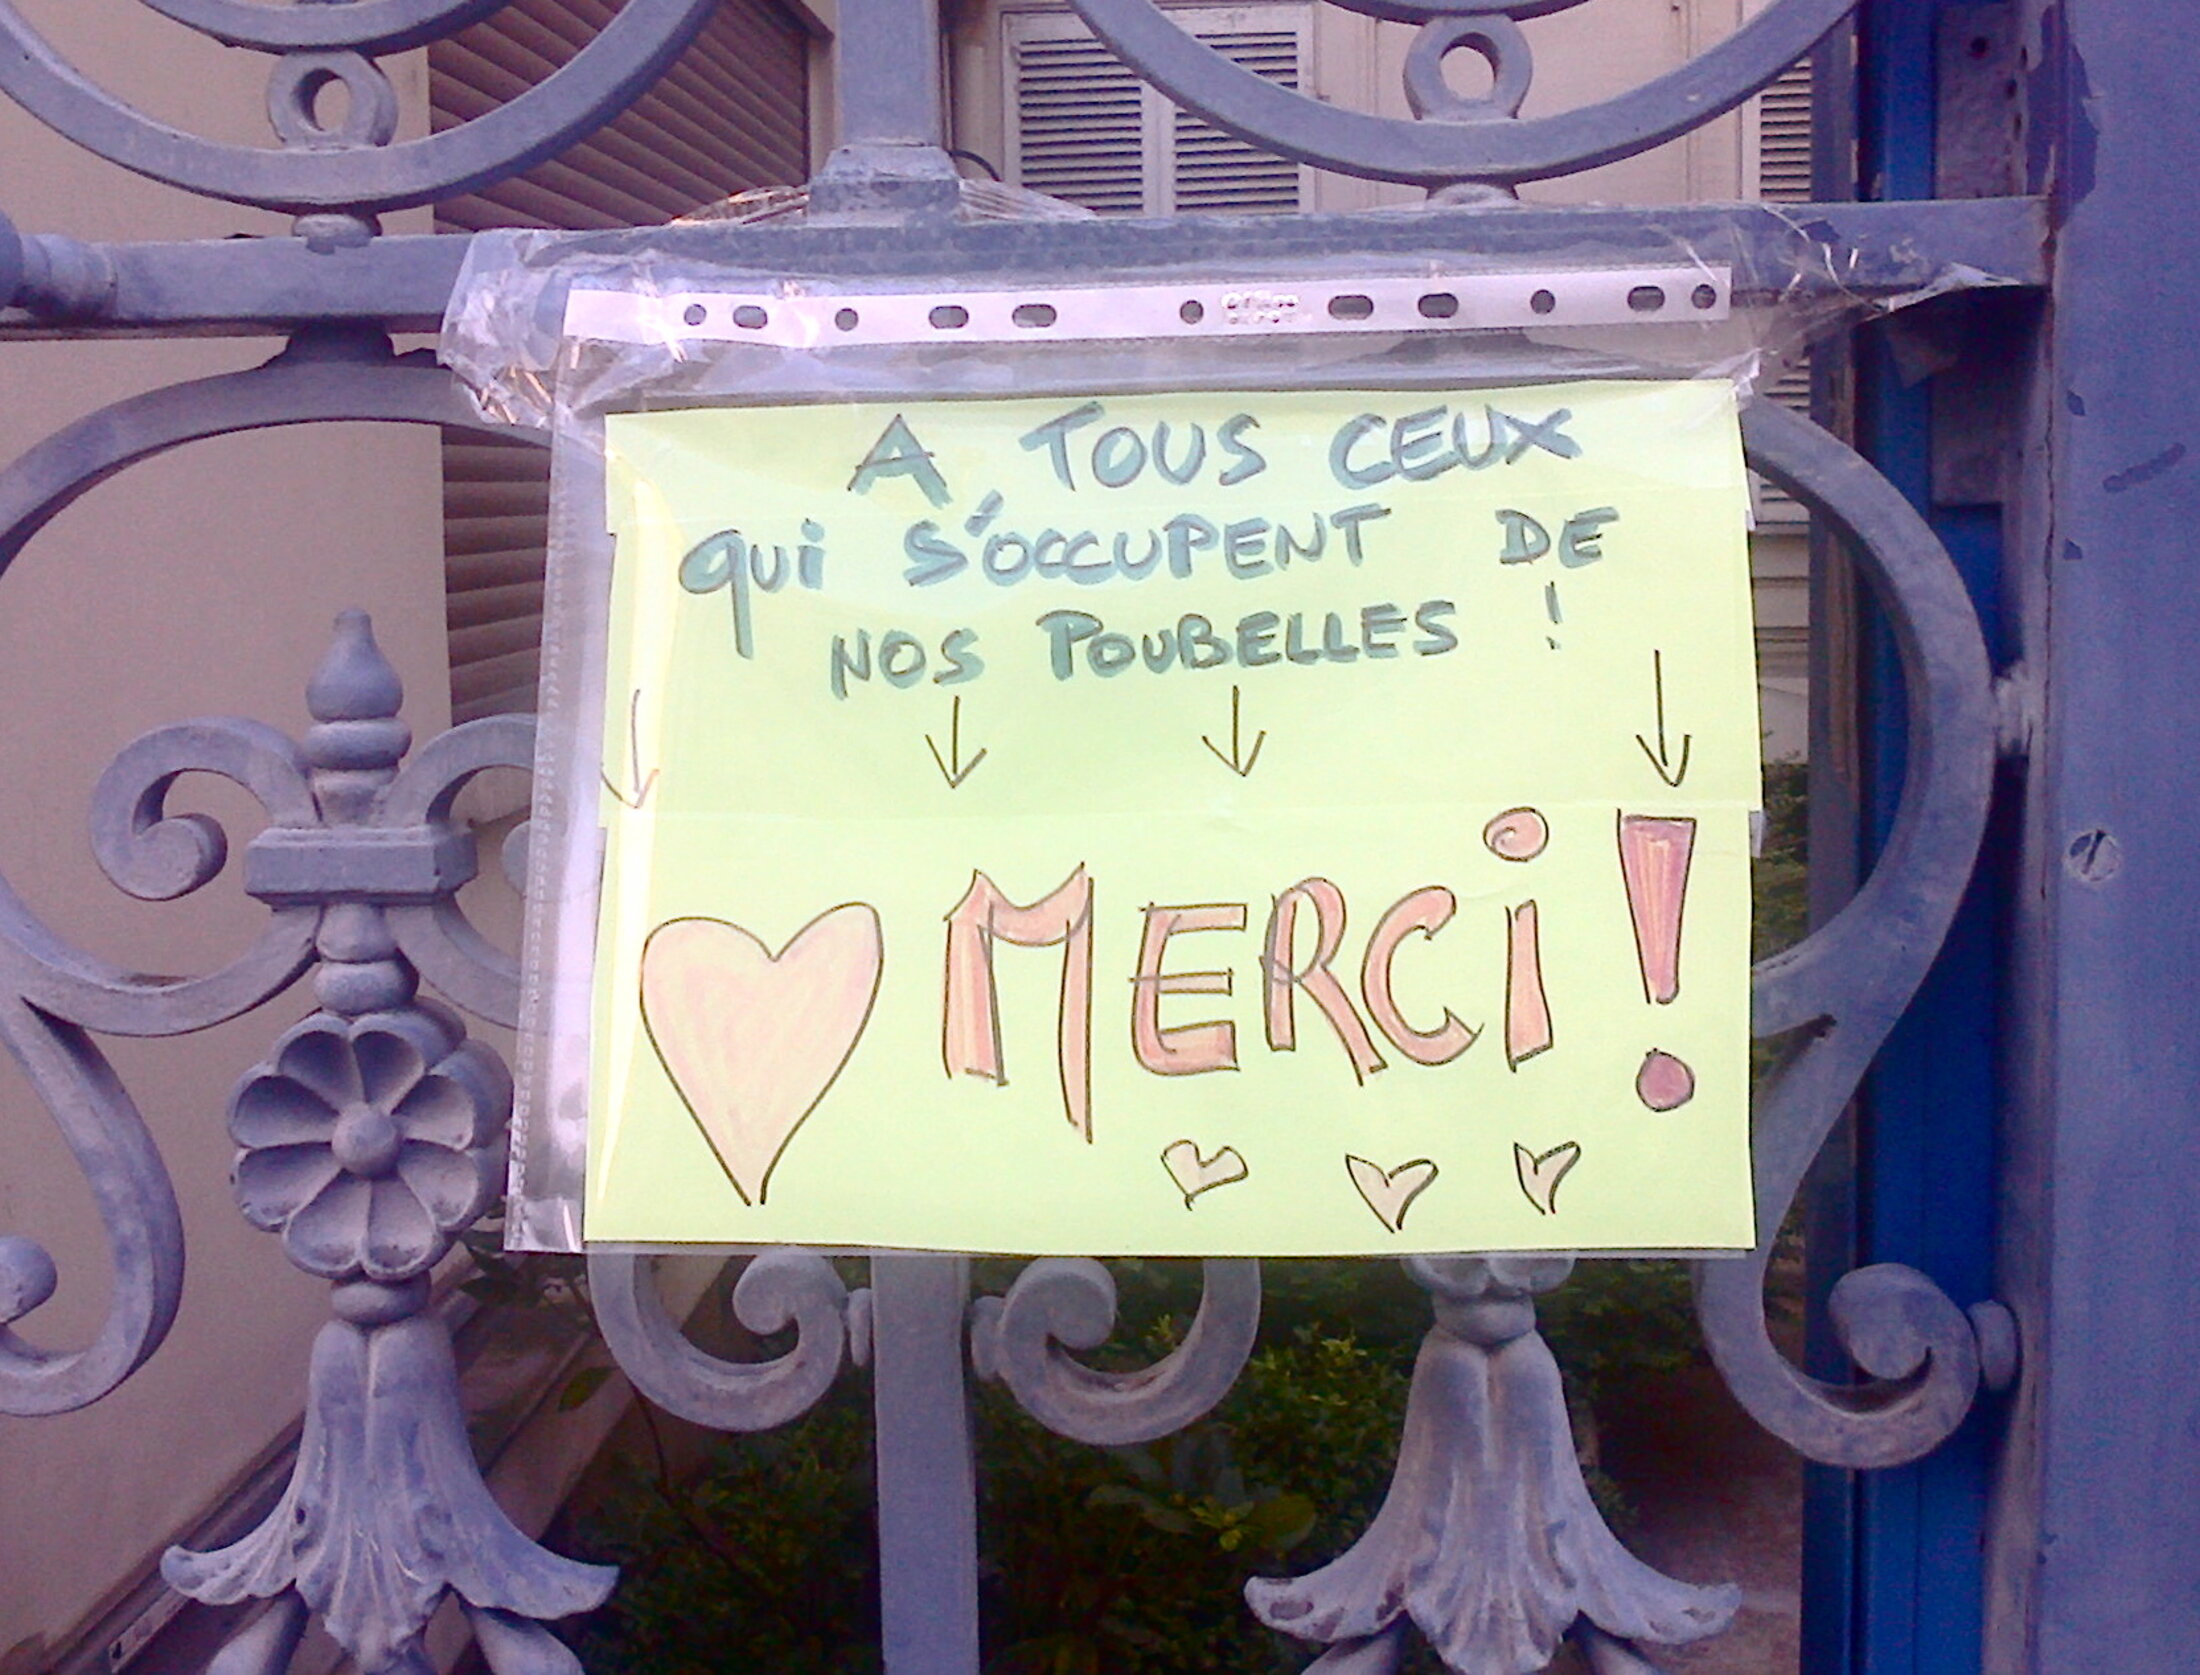 A TOUS CEUX
qui S'OCCUPENT DE
NOS POUBELLES !
MERCi !